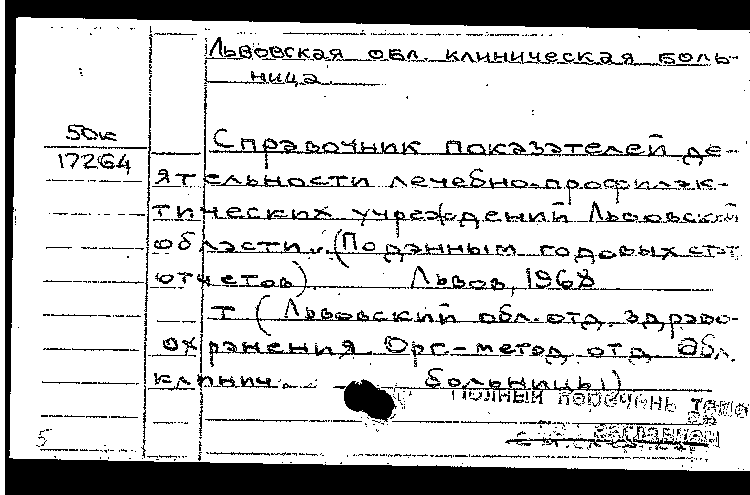 Львовская обл. клиническая боль-
ница.
50к
17264
Справочник показателей де-
ятельности лечебно-профилак-
тических учреждений Львовской
области. (По данным годовых стат.
отчетов). Львов, 1968
т (Львовский обл. отд. здраво-
охранения. Орг-метод. отд. Обл.
клинич. больницы)
полный перечень
5